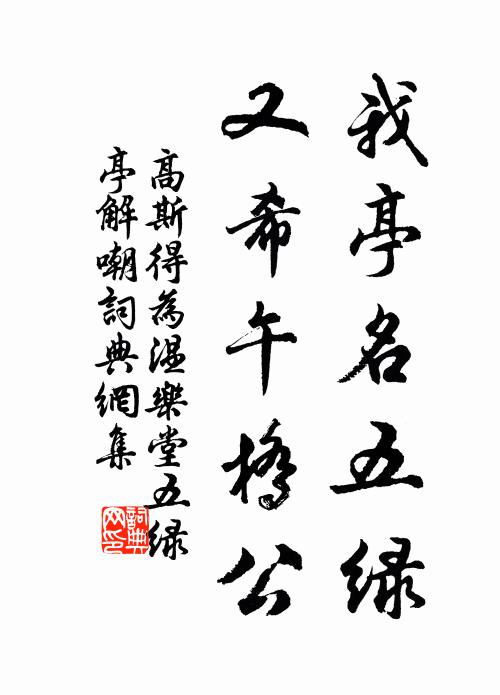 我亭名五绿
又希午橋公
高斯得為温樂堂五緑
亭解嘲詞典網集
詞典网印